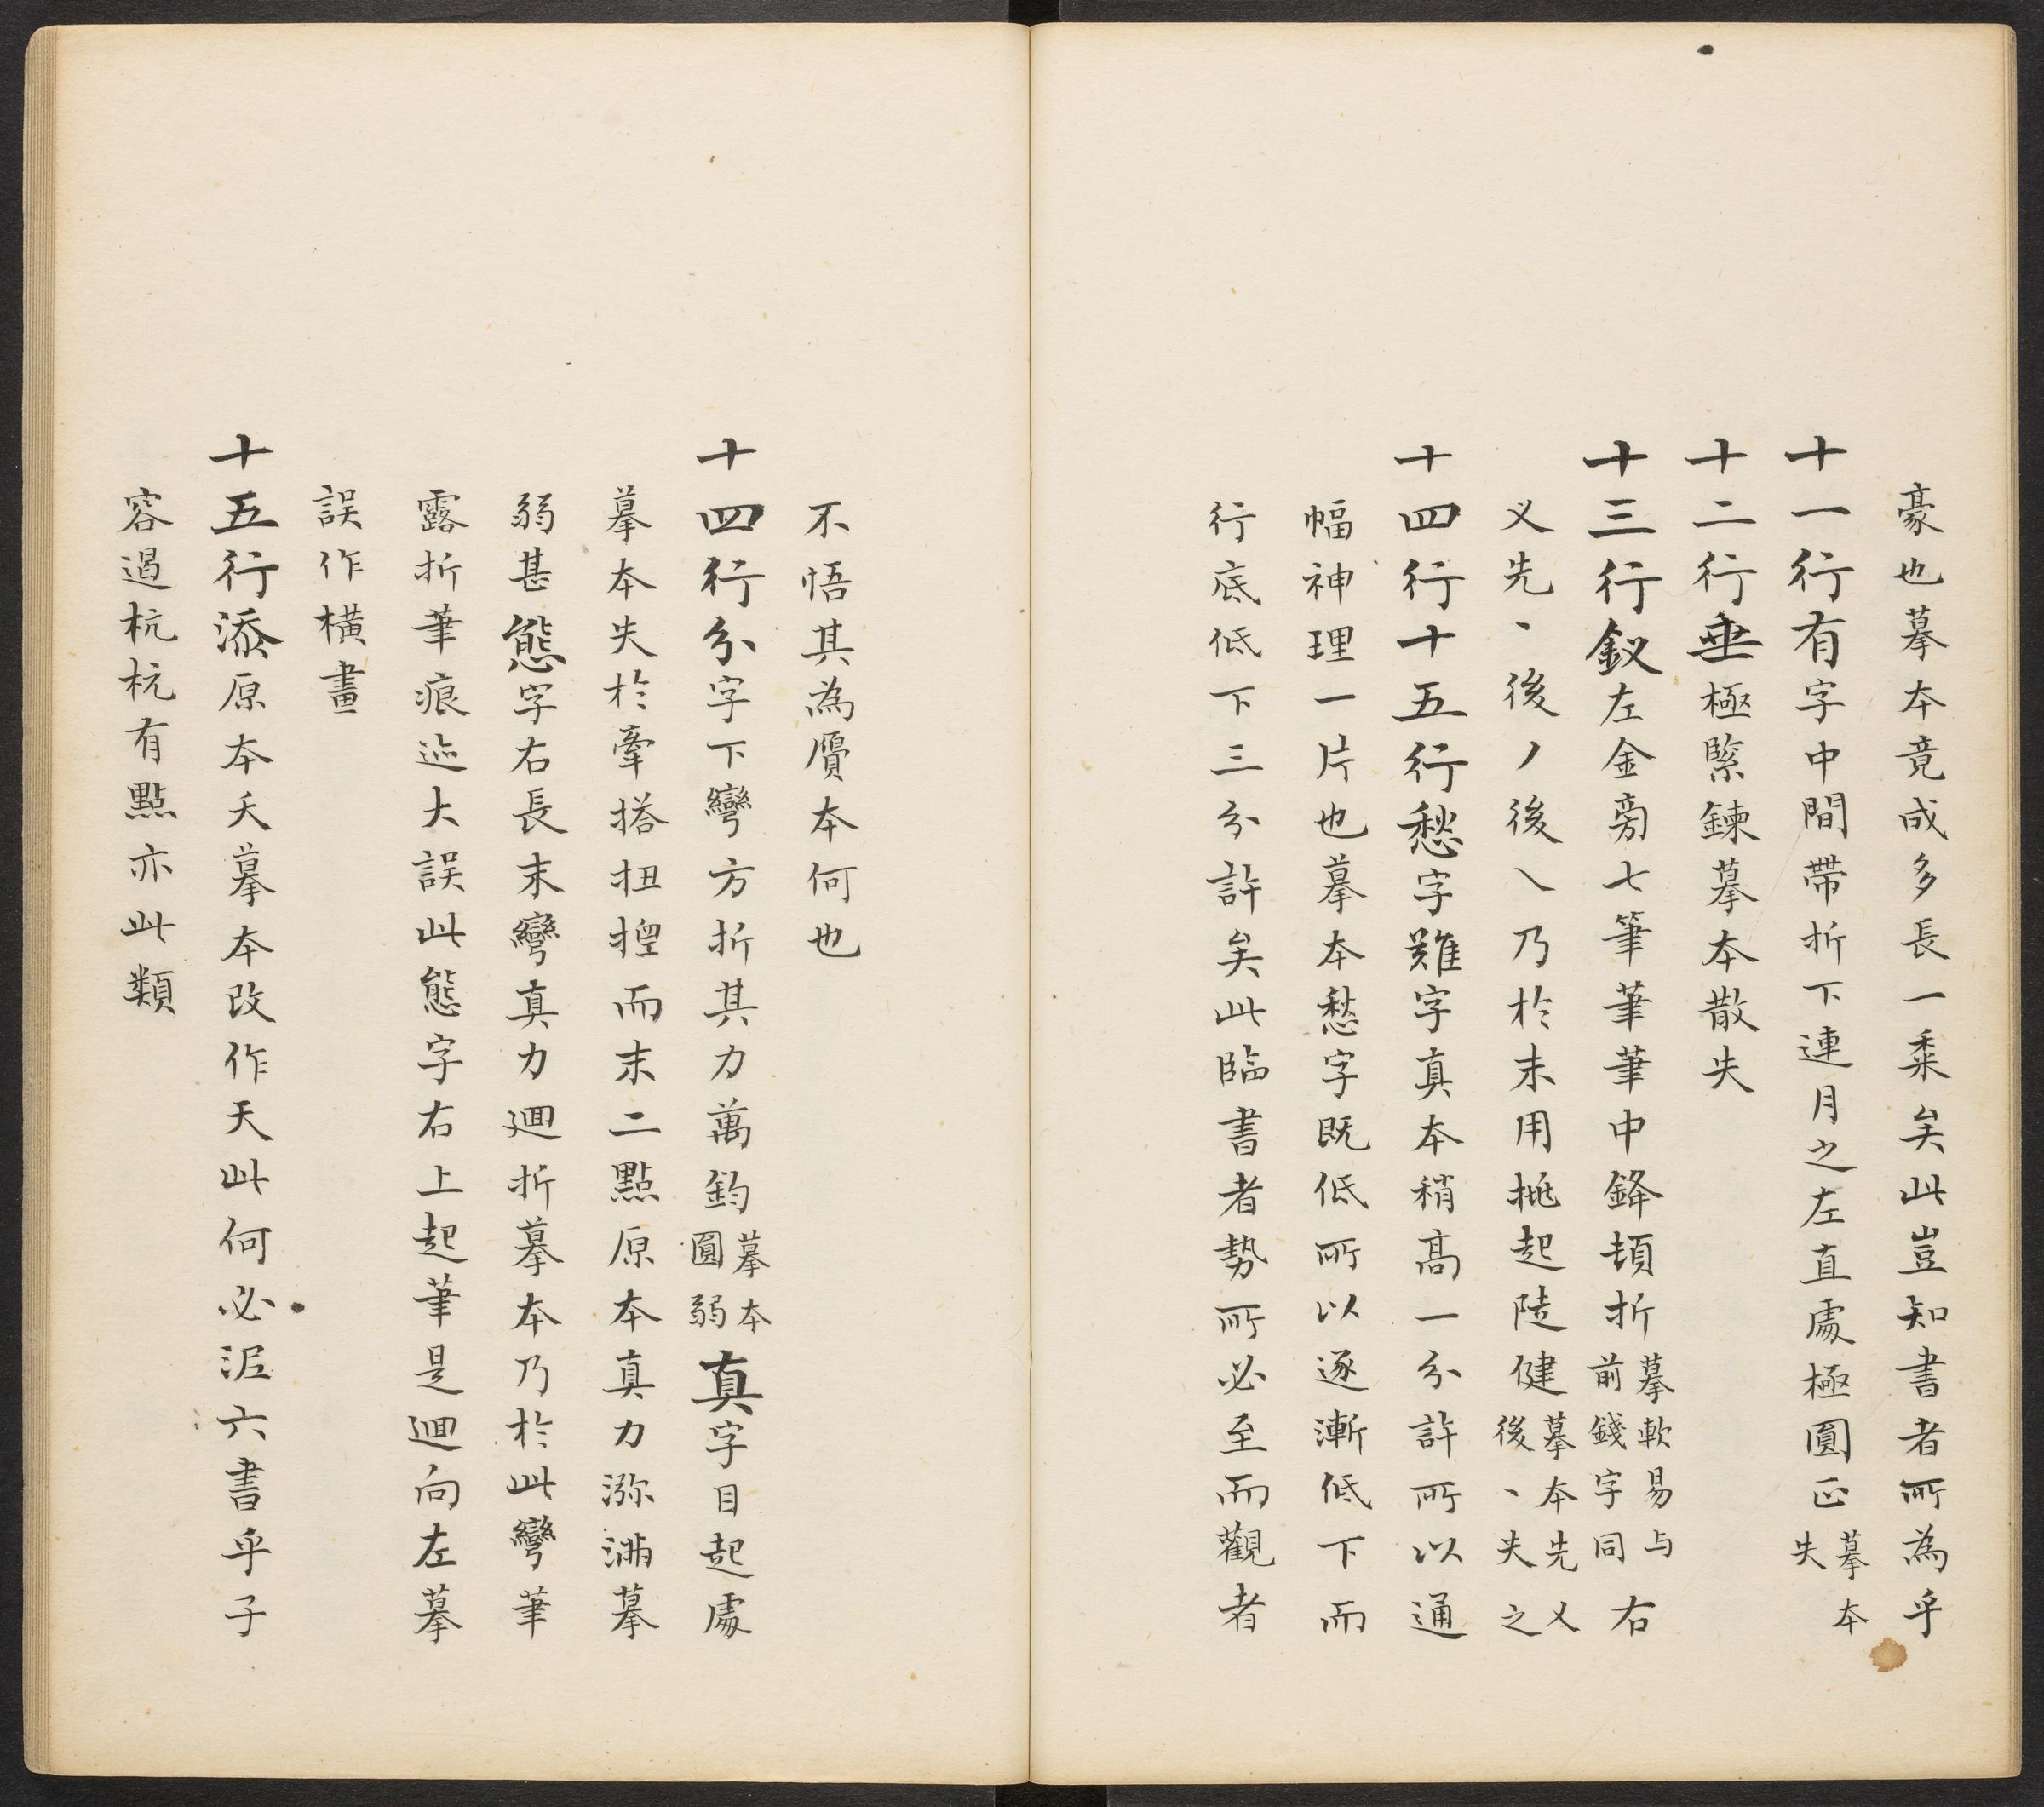 豪也摹本竟成多長一黍矣此豈知書者所為乎
十一行有字中間帶折下連月之左直處極圓正摹本失
十二行垂極緊鍊摹本散失
十三行釵左金旁七筆筆筆中鋒頓折摹軟易与前錢字同右
义先丶後丿後乀乃於末用挑起陡健摹本先乂後丶失之
十四行十五行愁字難字真本稍高一分許所以通
幅神理一片也摹本愁字既低所以逐漸低下而
行底低下三分許矣此臨書者勢所必至而觀者
不悟其為贗本何也
十四行分字下彎方折其力萬鈞摹本圓弱真字目起處
摹本失於牽搭扭捏而末二點原本真力瀰滿摹
弱甚態字右長末彎真力迴折摹本乃於此彎筆
露折筆痕迹大誤此態字右上起筆是迴向左摹
誤作橫畫
十五行添原本夭摹本改作天此何必泥六書乎子
容過杭杭有點亦此類